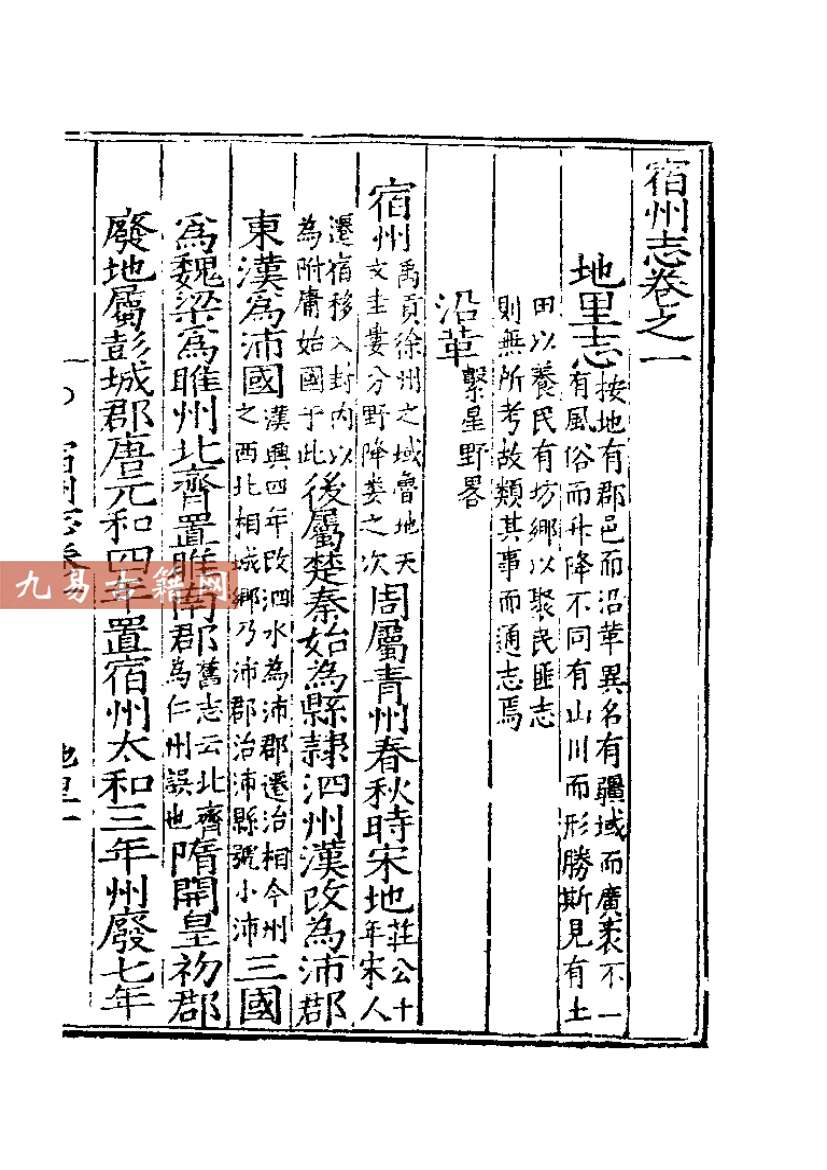 宿州志卷之一
地里志按地有郡邑而沿革異名有疆域而廣袤不一
有風俗而升降不同有山川而形勝斯見有土
田以養民有坊鄉以聚民匪志
則無所考故類其事而通志焉
沿革繫星野畧
宿州禹貢徐州之域魯地天
文圭婁分野降婁之次周屬青州春秋時宋地莊公十
年宋人
遷宿移入封内以
為附庸始國于此後屬楚秦始為縣隷泗州漢改為沛郡
東漢為沛國漢興四年改泗水為沛郡遷治相今州
之西北相城鄉乃沛郡治沛縣號小沛三國
為魏梁為睢州北齊置睢南郡舊志云北齊
為仁州誤也隋開皇初郡
廢地屬彭城郡唐元和四年置宿州太和三年州廢七年
宿州志卷
地里一
九易古籍网